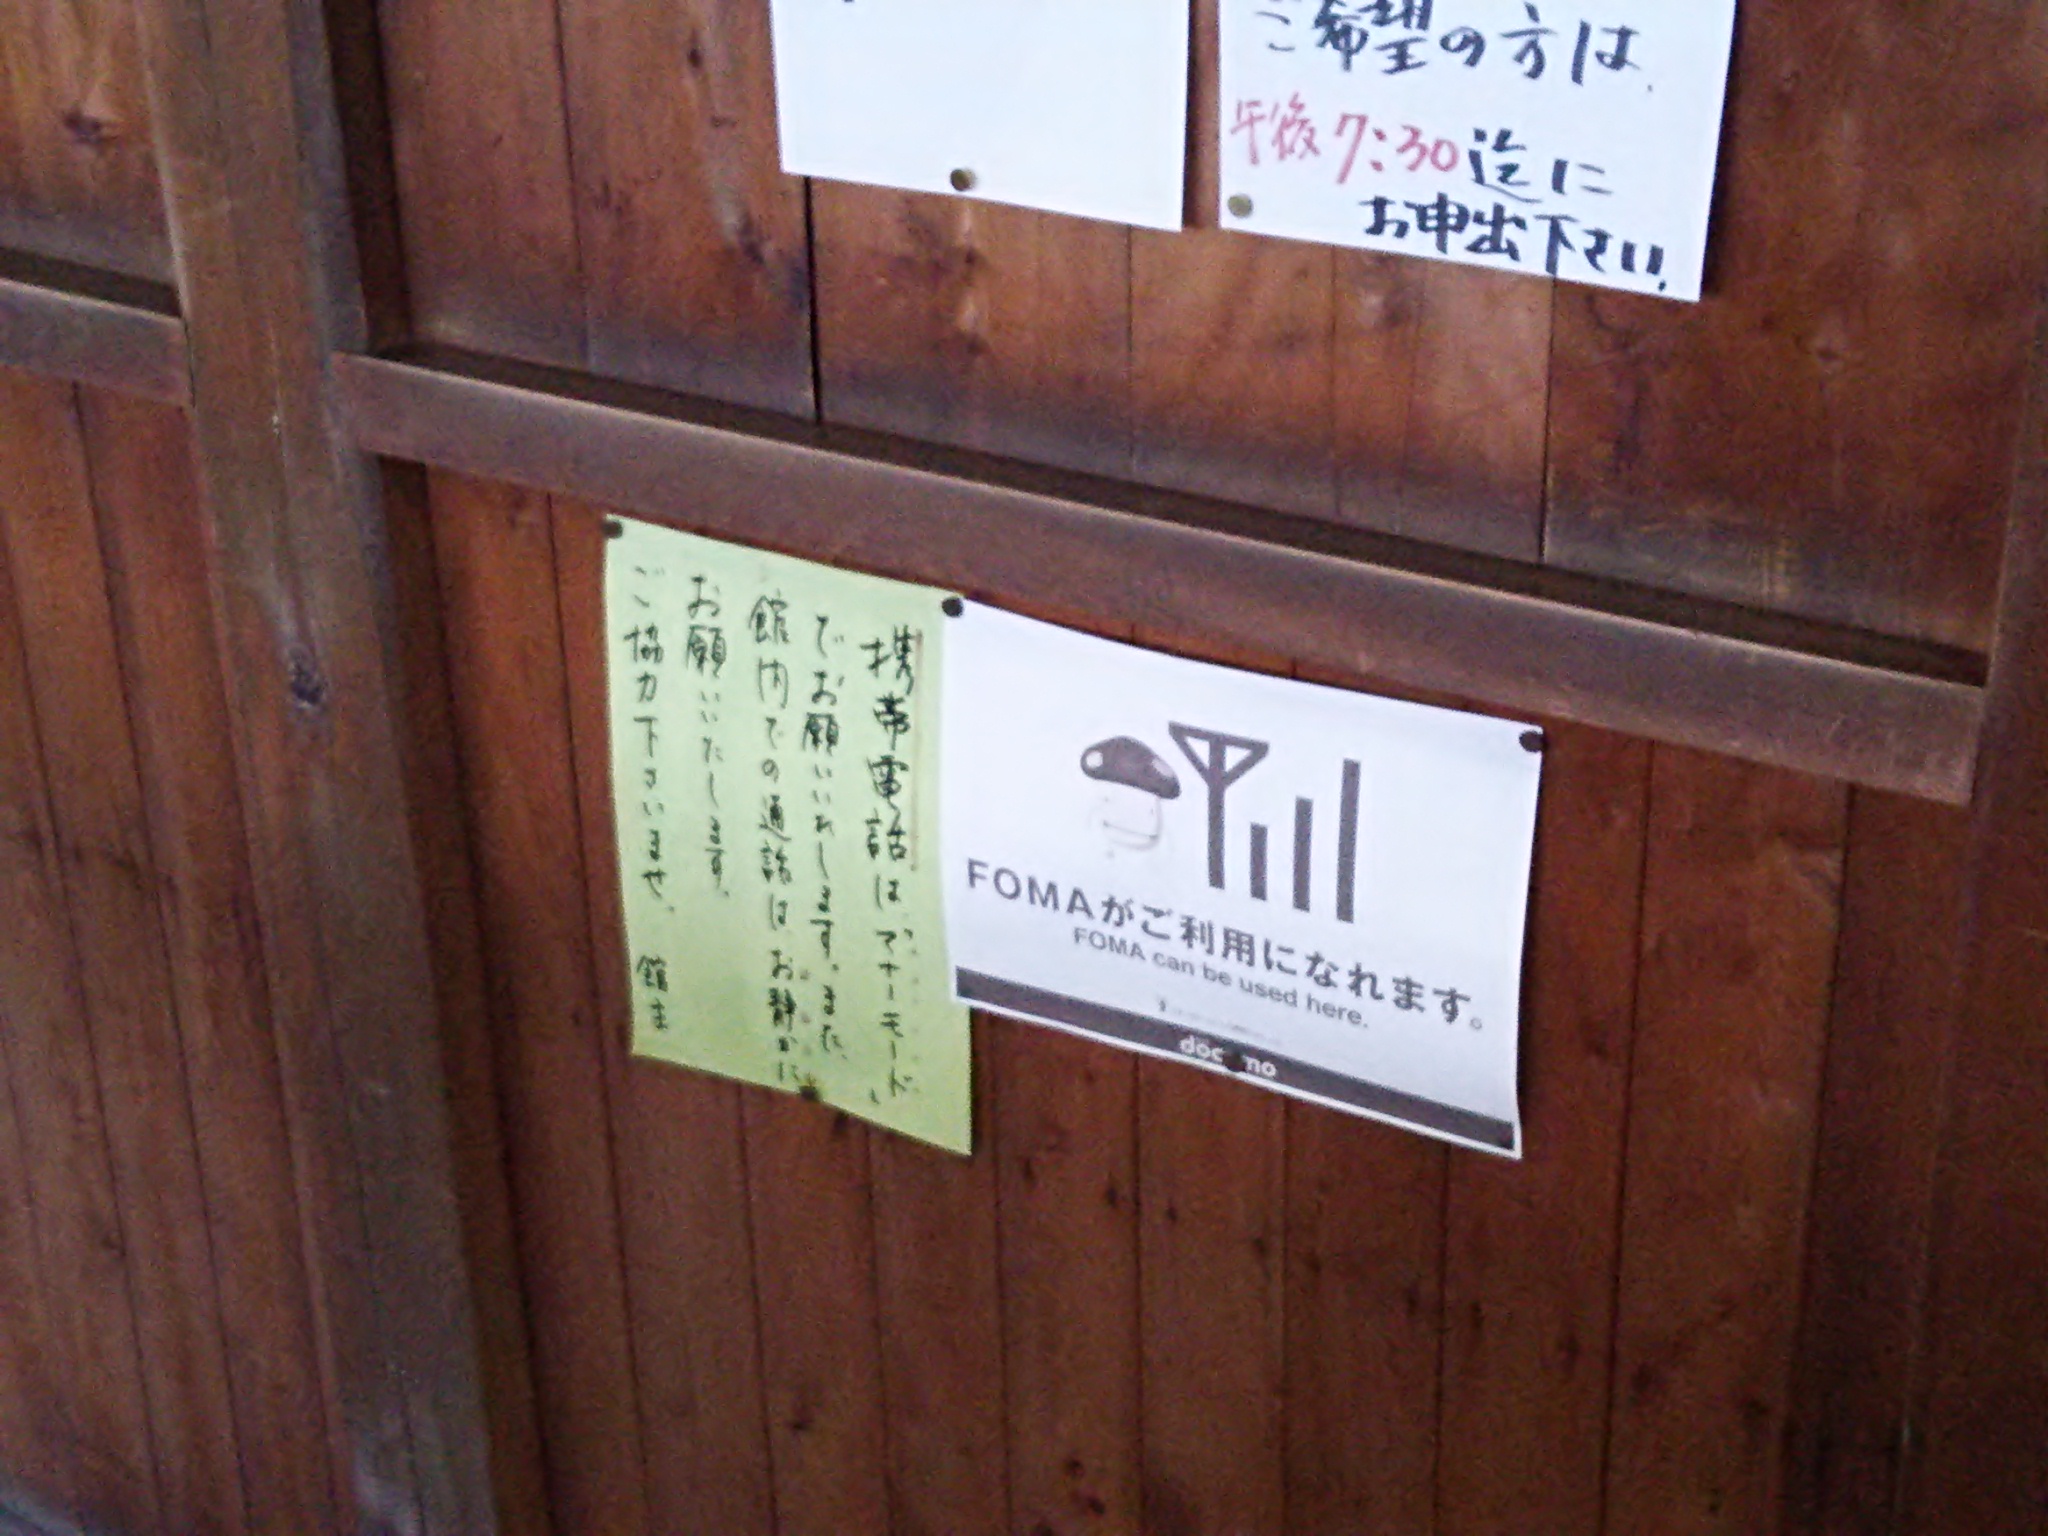 ご希望の方は、
午後7:30迄に
お申出下さい。
携帯電話は「マナーモード」
でお願いいたします。また、
館内での通話はお静かに
お願いいたします。
ご協力下さいませ。 館主
FOMAがご利用になれます。
FOMA can be used here.
docomo